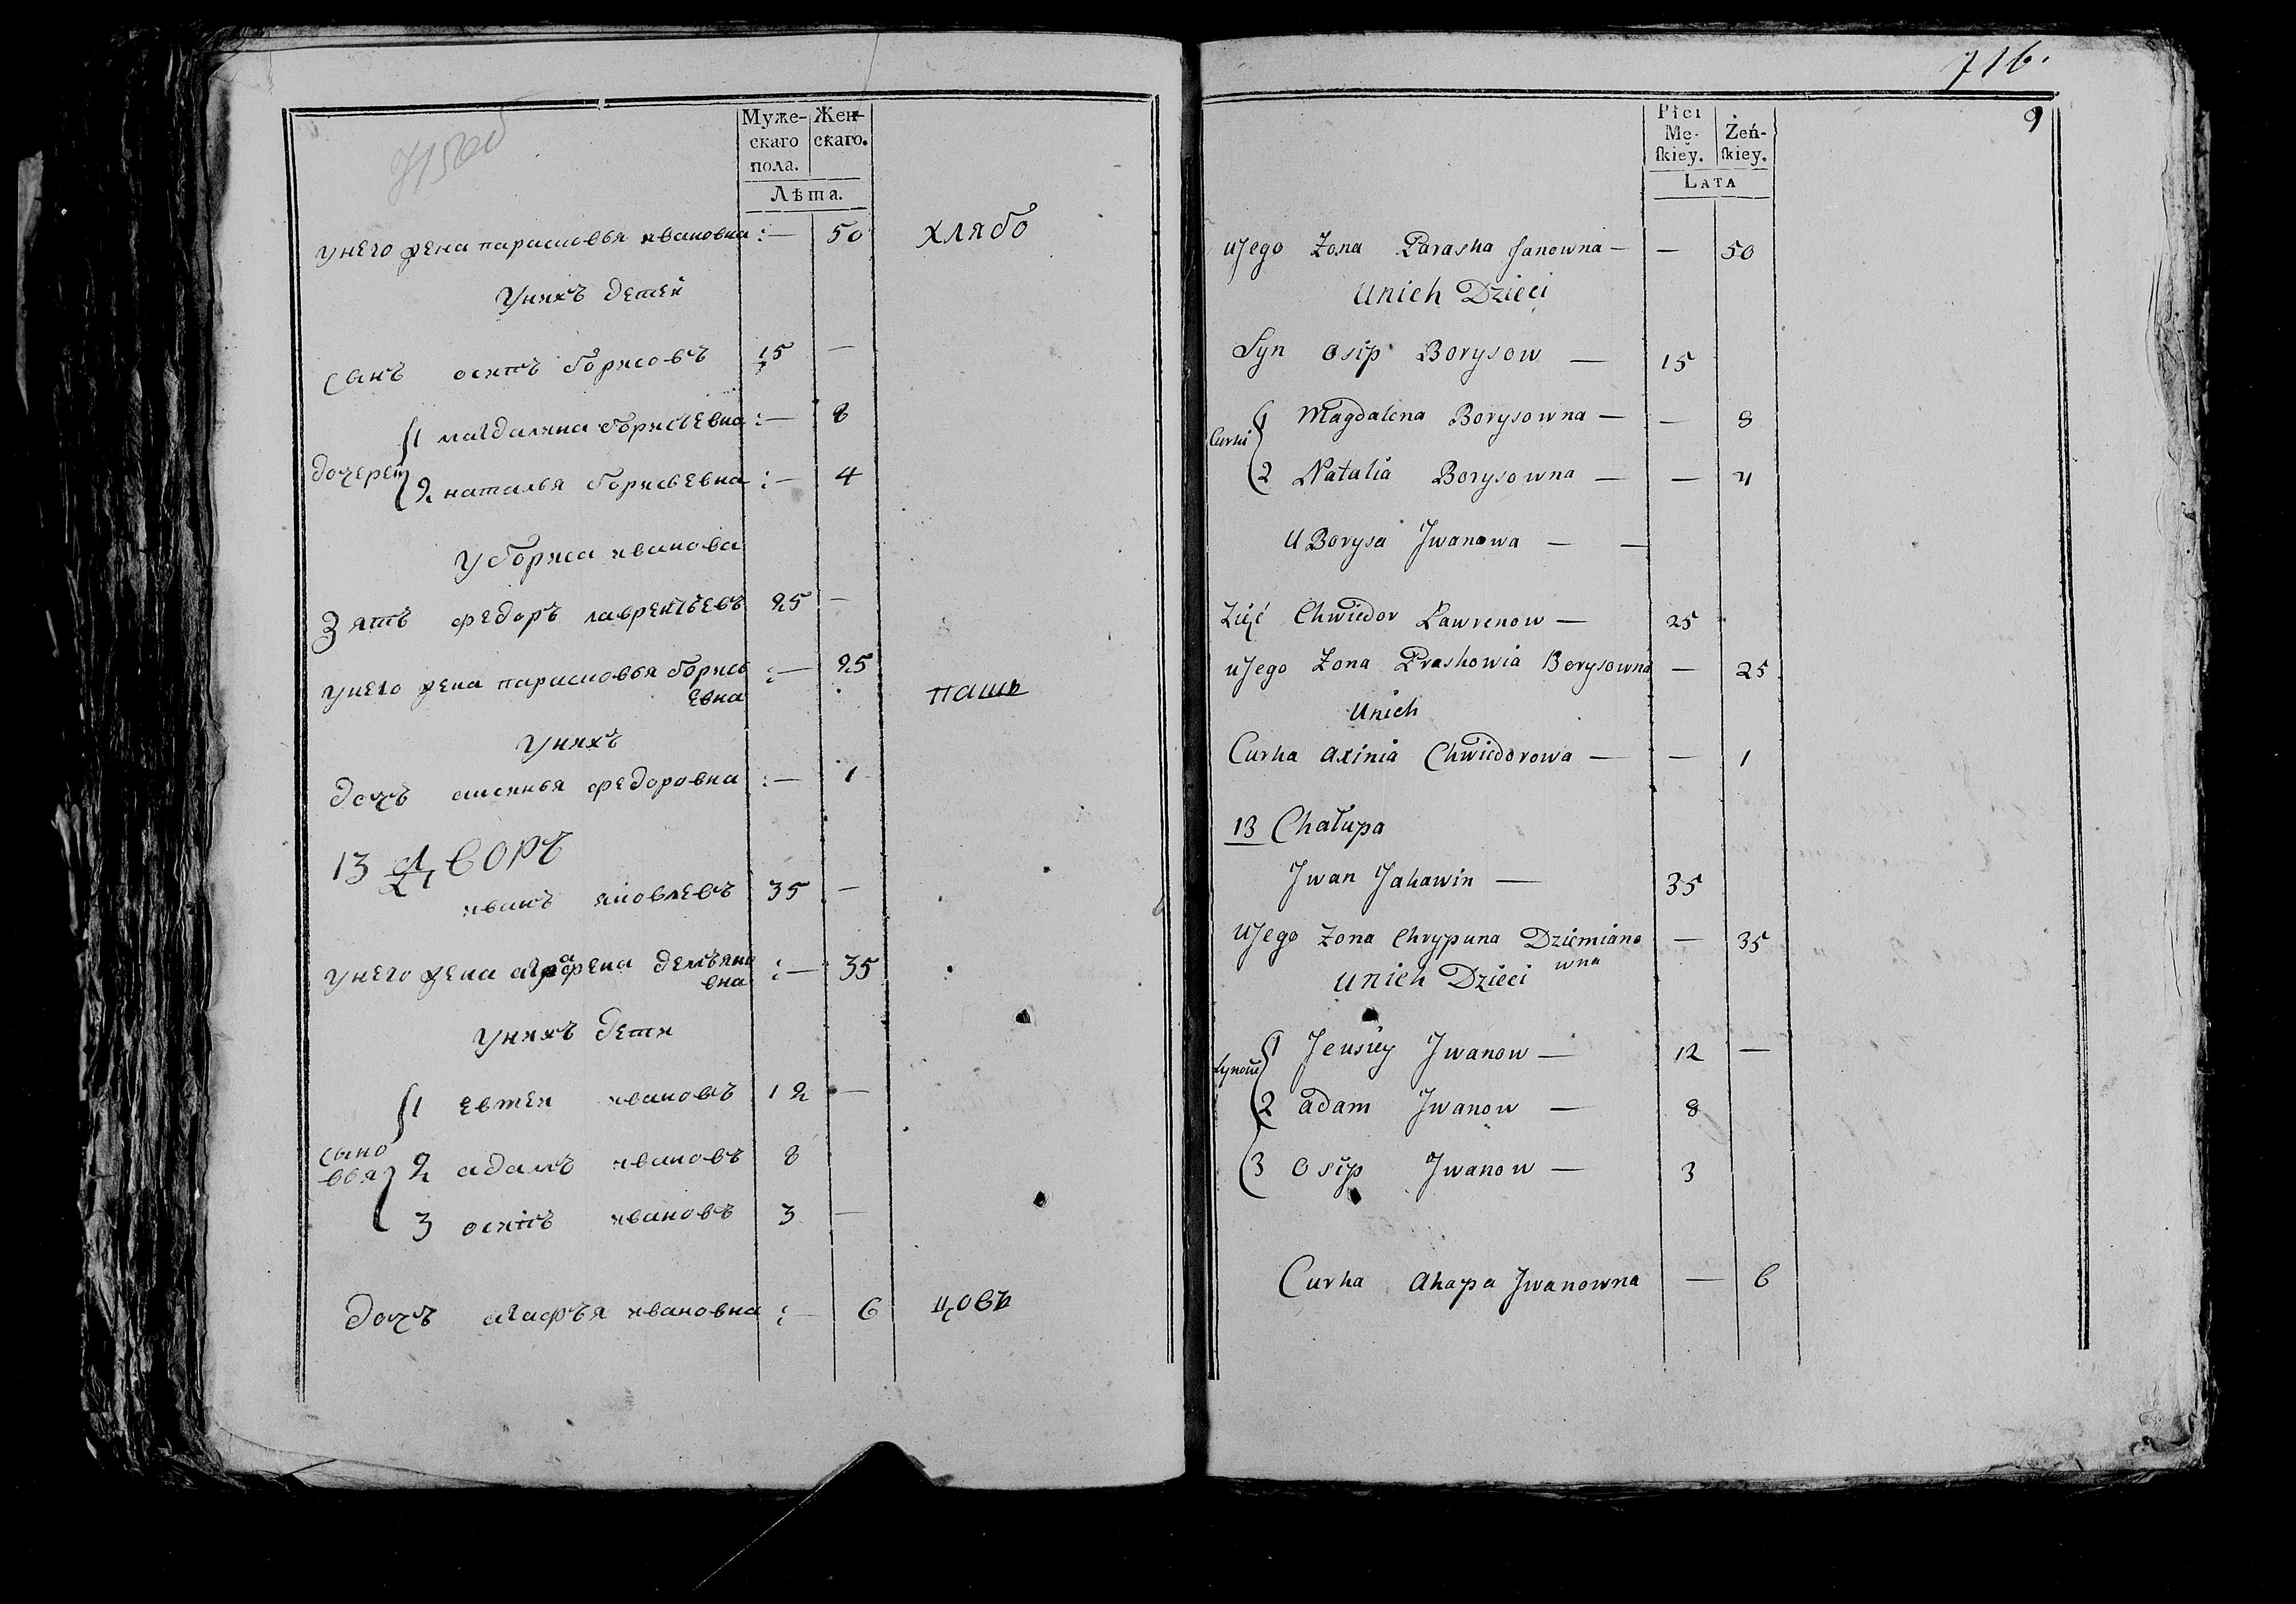 715 об
Муже-
скаго
пола.
Жен-
скаго.
Лѣта.
у него жена парасковья ивановна :— 50 хлябо
у нихъ детей
сынъ осипъ борисовъ 15 —
1 магдалина борисьевна :— 8
дочерей
2 наталья борисьевна :— 4
у бориса иванова
зять федоръ лаврентьевъ 25 —
у него жена парасковья борись
евна :— 25
пашъ
у нихъ
дочъ аксинья федоровна :— 1
13 дворъ
иванъ яковлевъ 35 —
у него жена аграфена демъяно
вна :— 35
у нихъ дети
1 евтей ивановъ 12 —
сыно
вья
2 адамъ ивановъ 8
3 осипъ ивановъ 3 —
дочъ агафъя ивановна :— 6 цовъ
716.
9
Płci
Mę-
ſkieÿ.
Żeń-
ſkiey.
LATA
u Jego Zona Paraska Janowna — — 50
U nich Dzieci
Syn Osip Borysow — 15
Curki
1 Magdalena Borysowna — — 8
2 Natalia Borysowna — — 4
U Borysa Jwanowa — —
Zięć Chwiedor Ławrenow — 25
u Jego Zona Praskowia Borysowna — 25
U nich
Curka Axinia Chwiedorowa — — 1
13 Chałupa
Jwan Jakawin — 35
U Jego Zona Chrypuna Dziemiano
wna — 35
U nich Dzieci
1 Jeusiey Jwanow — 12 —
Synowie
2 Adam Jwanow — 8
3 Osip Jwanow — 3
Curka Ahapa Jwanowna — 6